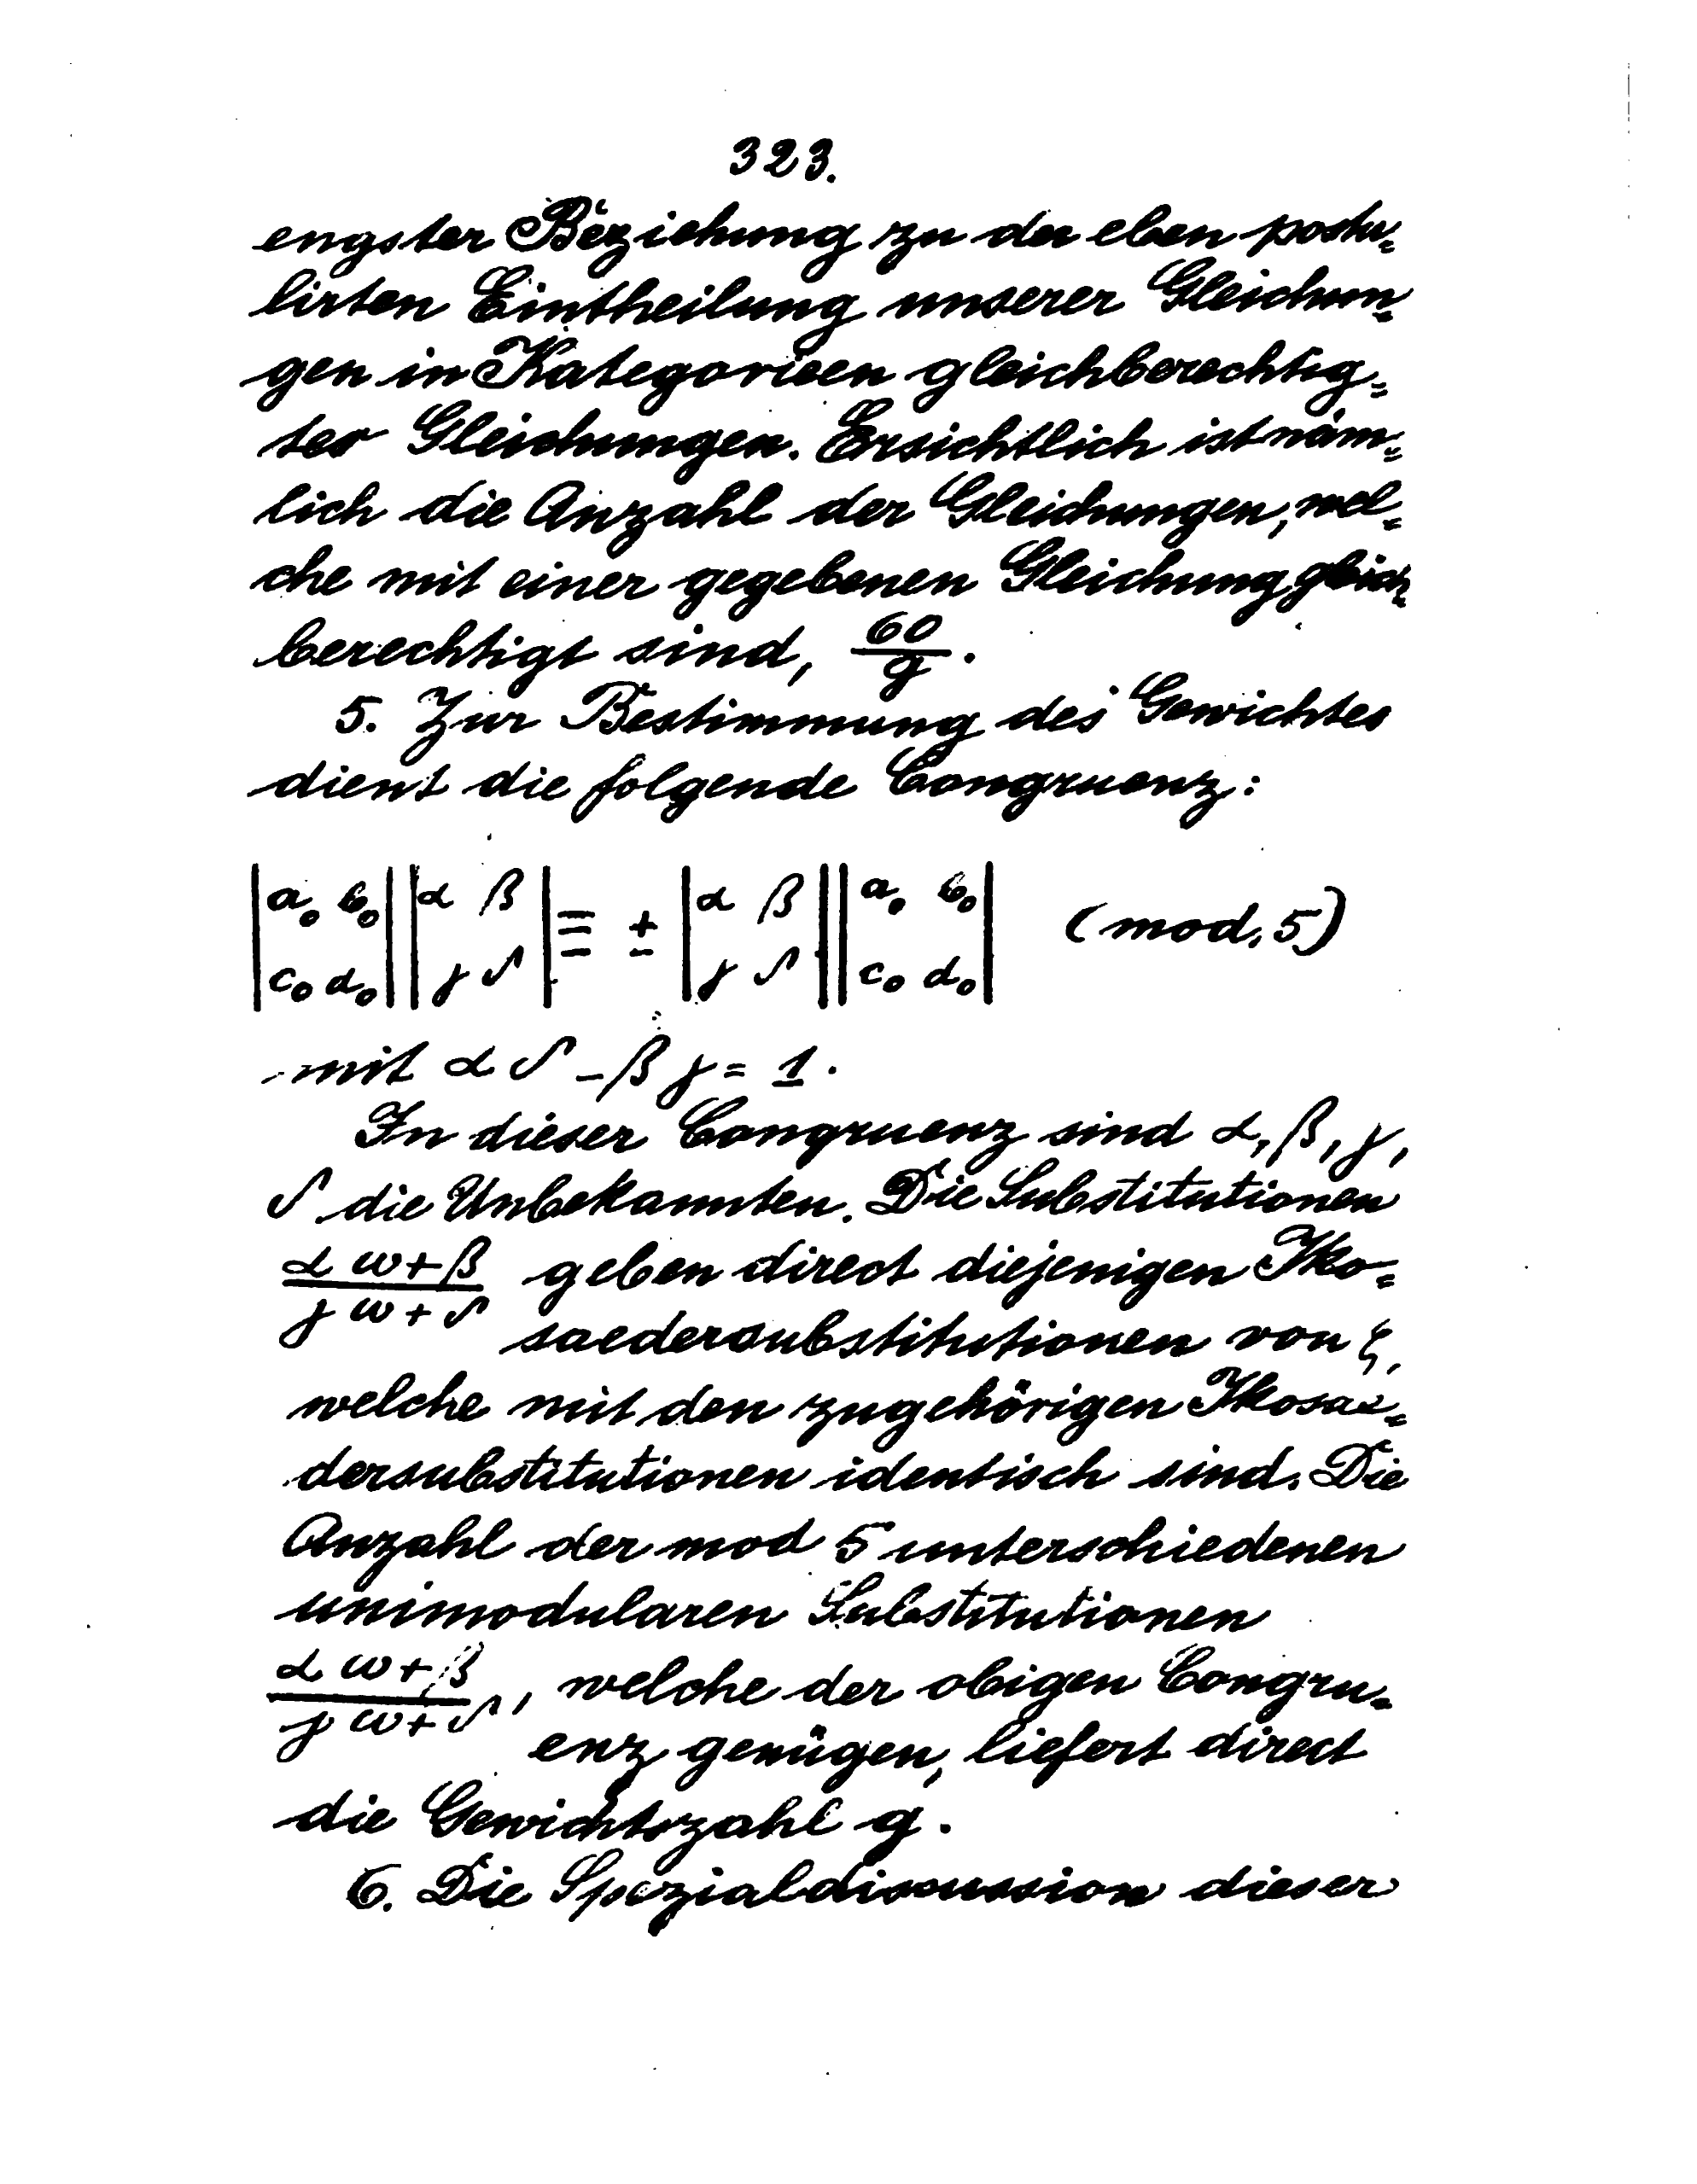 323.
engster Beziehung zu der eben postu=
lirten Eintheilung unserer Gleichun=
gen in Kategorieen gleichberechtig=
ter Gleichungen. Ersichtlich ist näm=
lich die Anzahl der Gleichungen, wel=
che mit einer gegebenen Gleichung gleich=
berechtigt sind, 60/g.
5. Zur Bestimmung des Gewichtes
dient die folgende Congruenz:
|a₀ b₀| |α β| ≡ ± |α β| |a₀ b₀| (mod. 5)
|c₀ d₀| |γ δ| |γ δ| |c₀ d₀|
mit α δ - β γ = 1.
In dieser Congruenz sind α, β, γ,
δ die Unbekannten. Die Substitutionen
(α ω + β)/(γ ω + δ) geben direct diejenigen Iko=
saedersubstitutionen von ζ,
welche mit den zugehörigen Ikosae=
dersubstitutionen identisch sind. Die
Anzahl der mod 5 unterschiedenen
unimodularen Substitutionen
(α ω + β)/(γ ω + δ), welche der obigen Congru=
enz genügen, liefert direct
die Gewichtszahl g.
6. Die Spezialdiscussion dieser